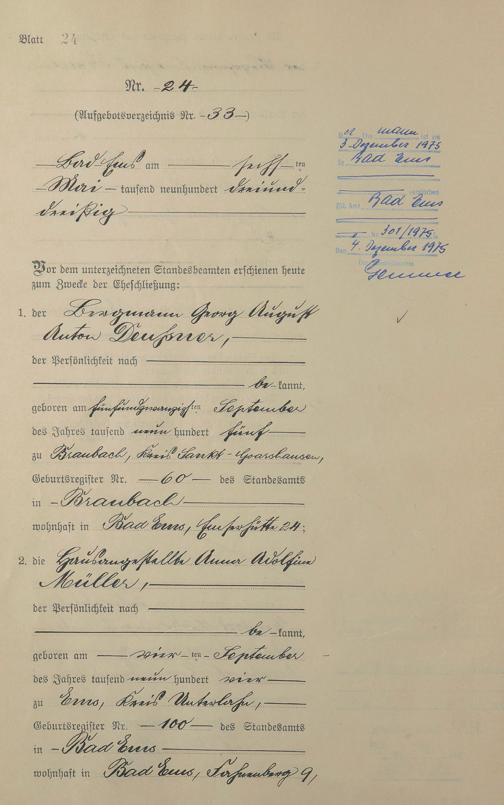 Blatt 24
Nr. -24-
(Aufgebotsverzeichnis Nr. -33-)
Bad Ems am sechsten
Mai tausend neunhundert dreiund-
dreißig
Vor dem unterzeichneten Standesbeamten erschienen heute
zum Zwecke der Eheschließung:
1. der Bergmann Georg August
Anton
der Persönlichkeit nach
be-kannt,
geboren am fünfundzwanzigsten September
des Jahres tausend neun hundert fünf
zu Braubach, Kreis Sankt-Goarshausen,
Geburtsregister Nr. -60- des Standesamts
in -Braubach
wohnhaft in Bad Ems, Emserhütte 24;
2. die Hausangestellte Anna Adolfine
Müller,
der Persönlichkeit nach
be-kannt,
geboren am vierten September
des Jahres tausend neun hundert vier
zu Ems, Kreis Unterlahn,
Geburtsregister Nr. -100- des Standesamts
in -Bad Ems
wohnhaft in Bad Ems, Fahnenberg 9,
mann
3. Dezember 1975
Bad Ems
Bad Ems
Nr. 301/1975
4. Dezember 1975